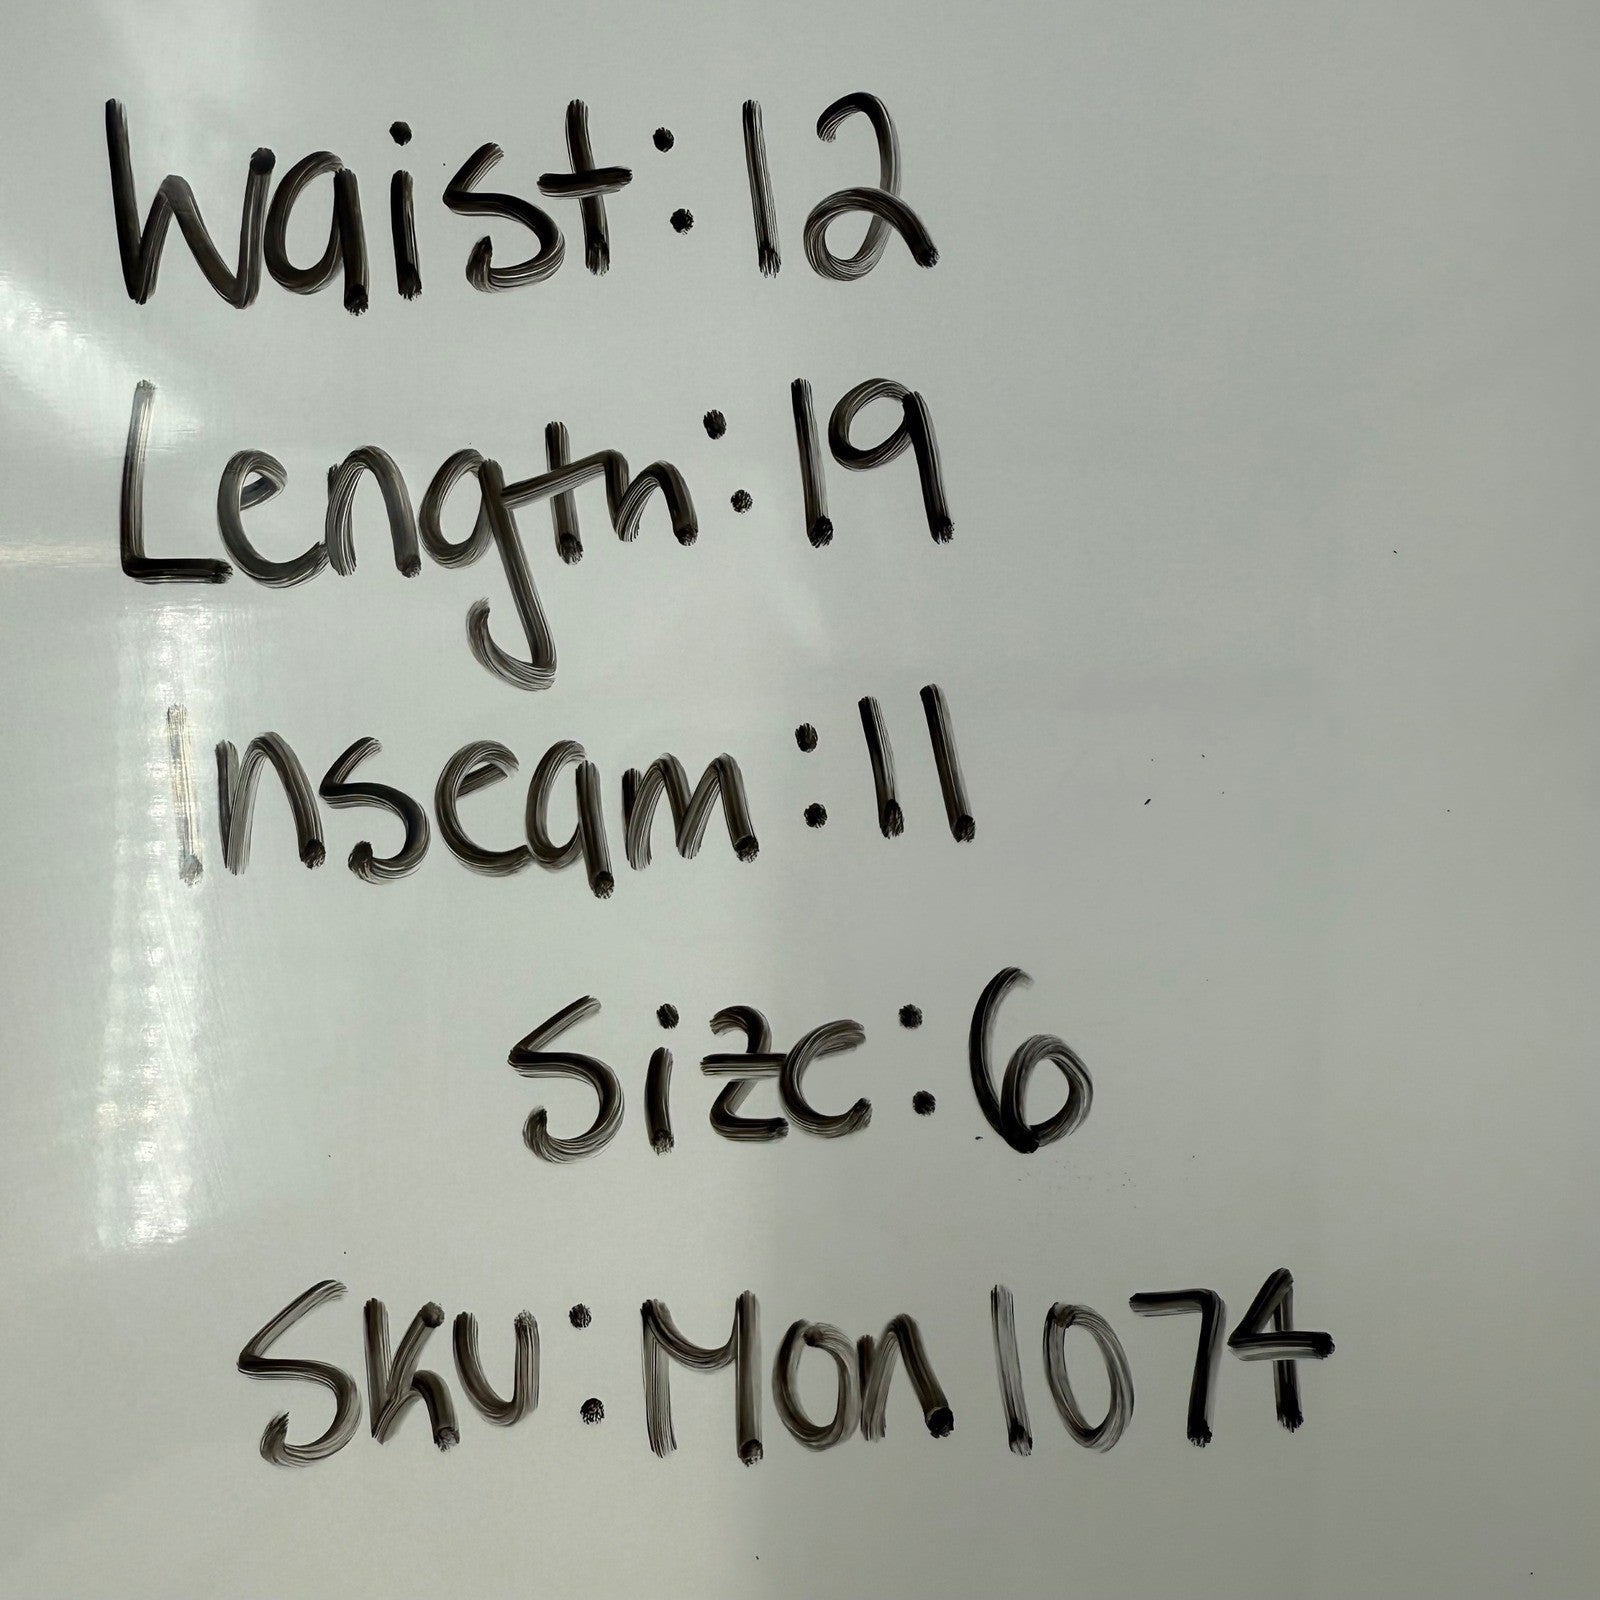 Waist: 12
Length: 19
Inseam: 11
Size: 6
Sku: Mon 1074